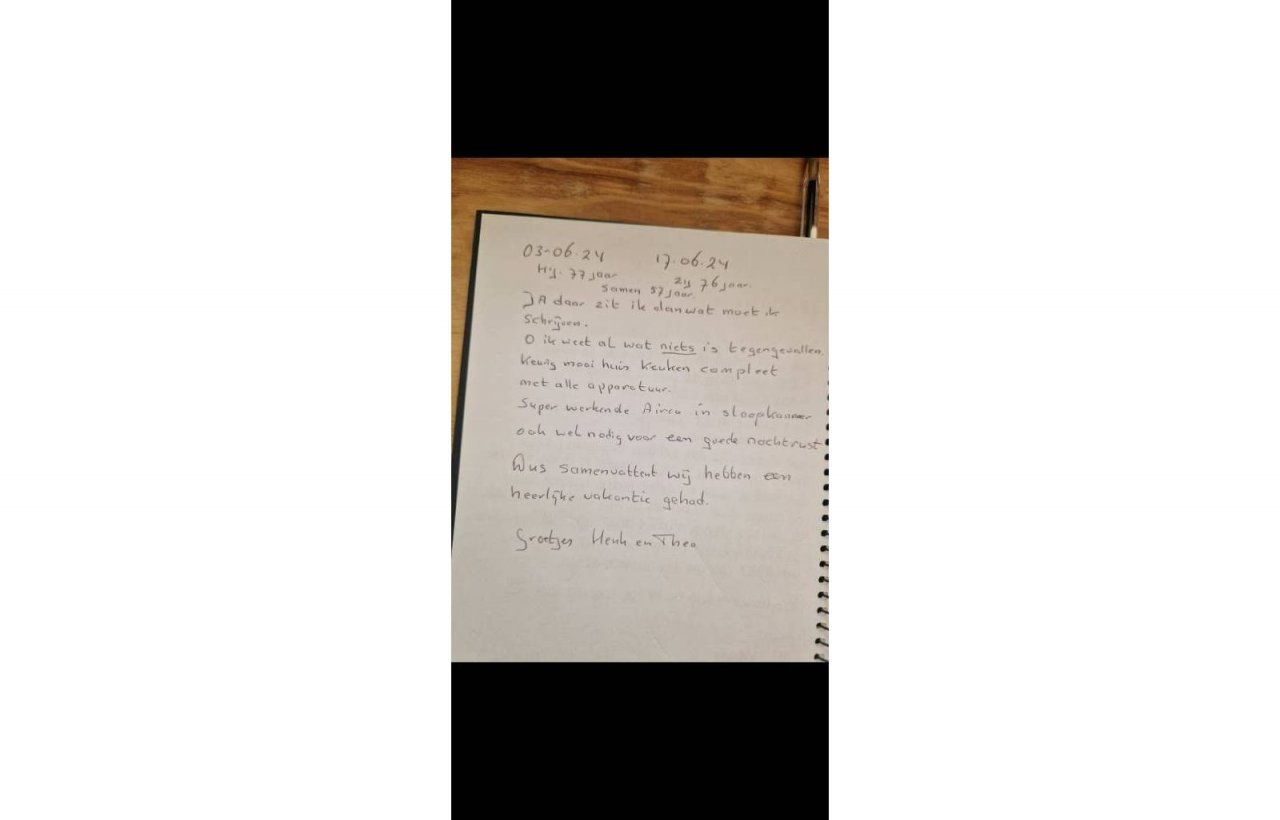 03-06.24 17.06.24
Hij. 77 jaar zij 76 jaar.
Samen 57 jaar
JA daar zit ik dan wat moet ik
schrijven.
O ik weet al wat niets is tegengevallen
Keurig mooi huis Keuken compleet
met alle apparatuur.
Super werkende Airco in slaapkamer
ook wel nodig voor een goede nachtrust
Dus samenvattent wij hebben een
heerlijke vakantie gehad.
Groetjes Henk en Thea